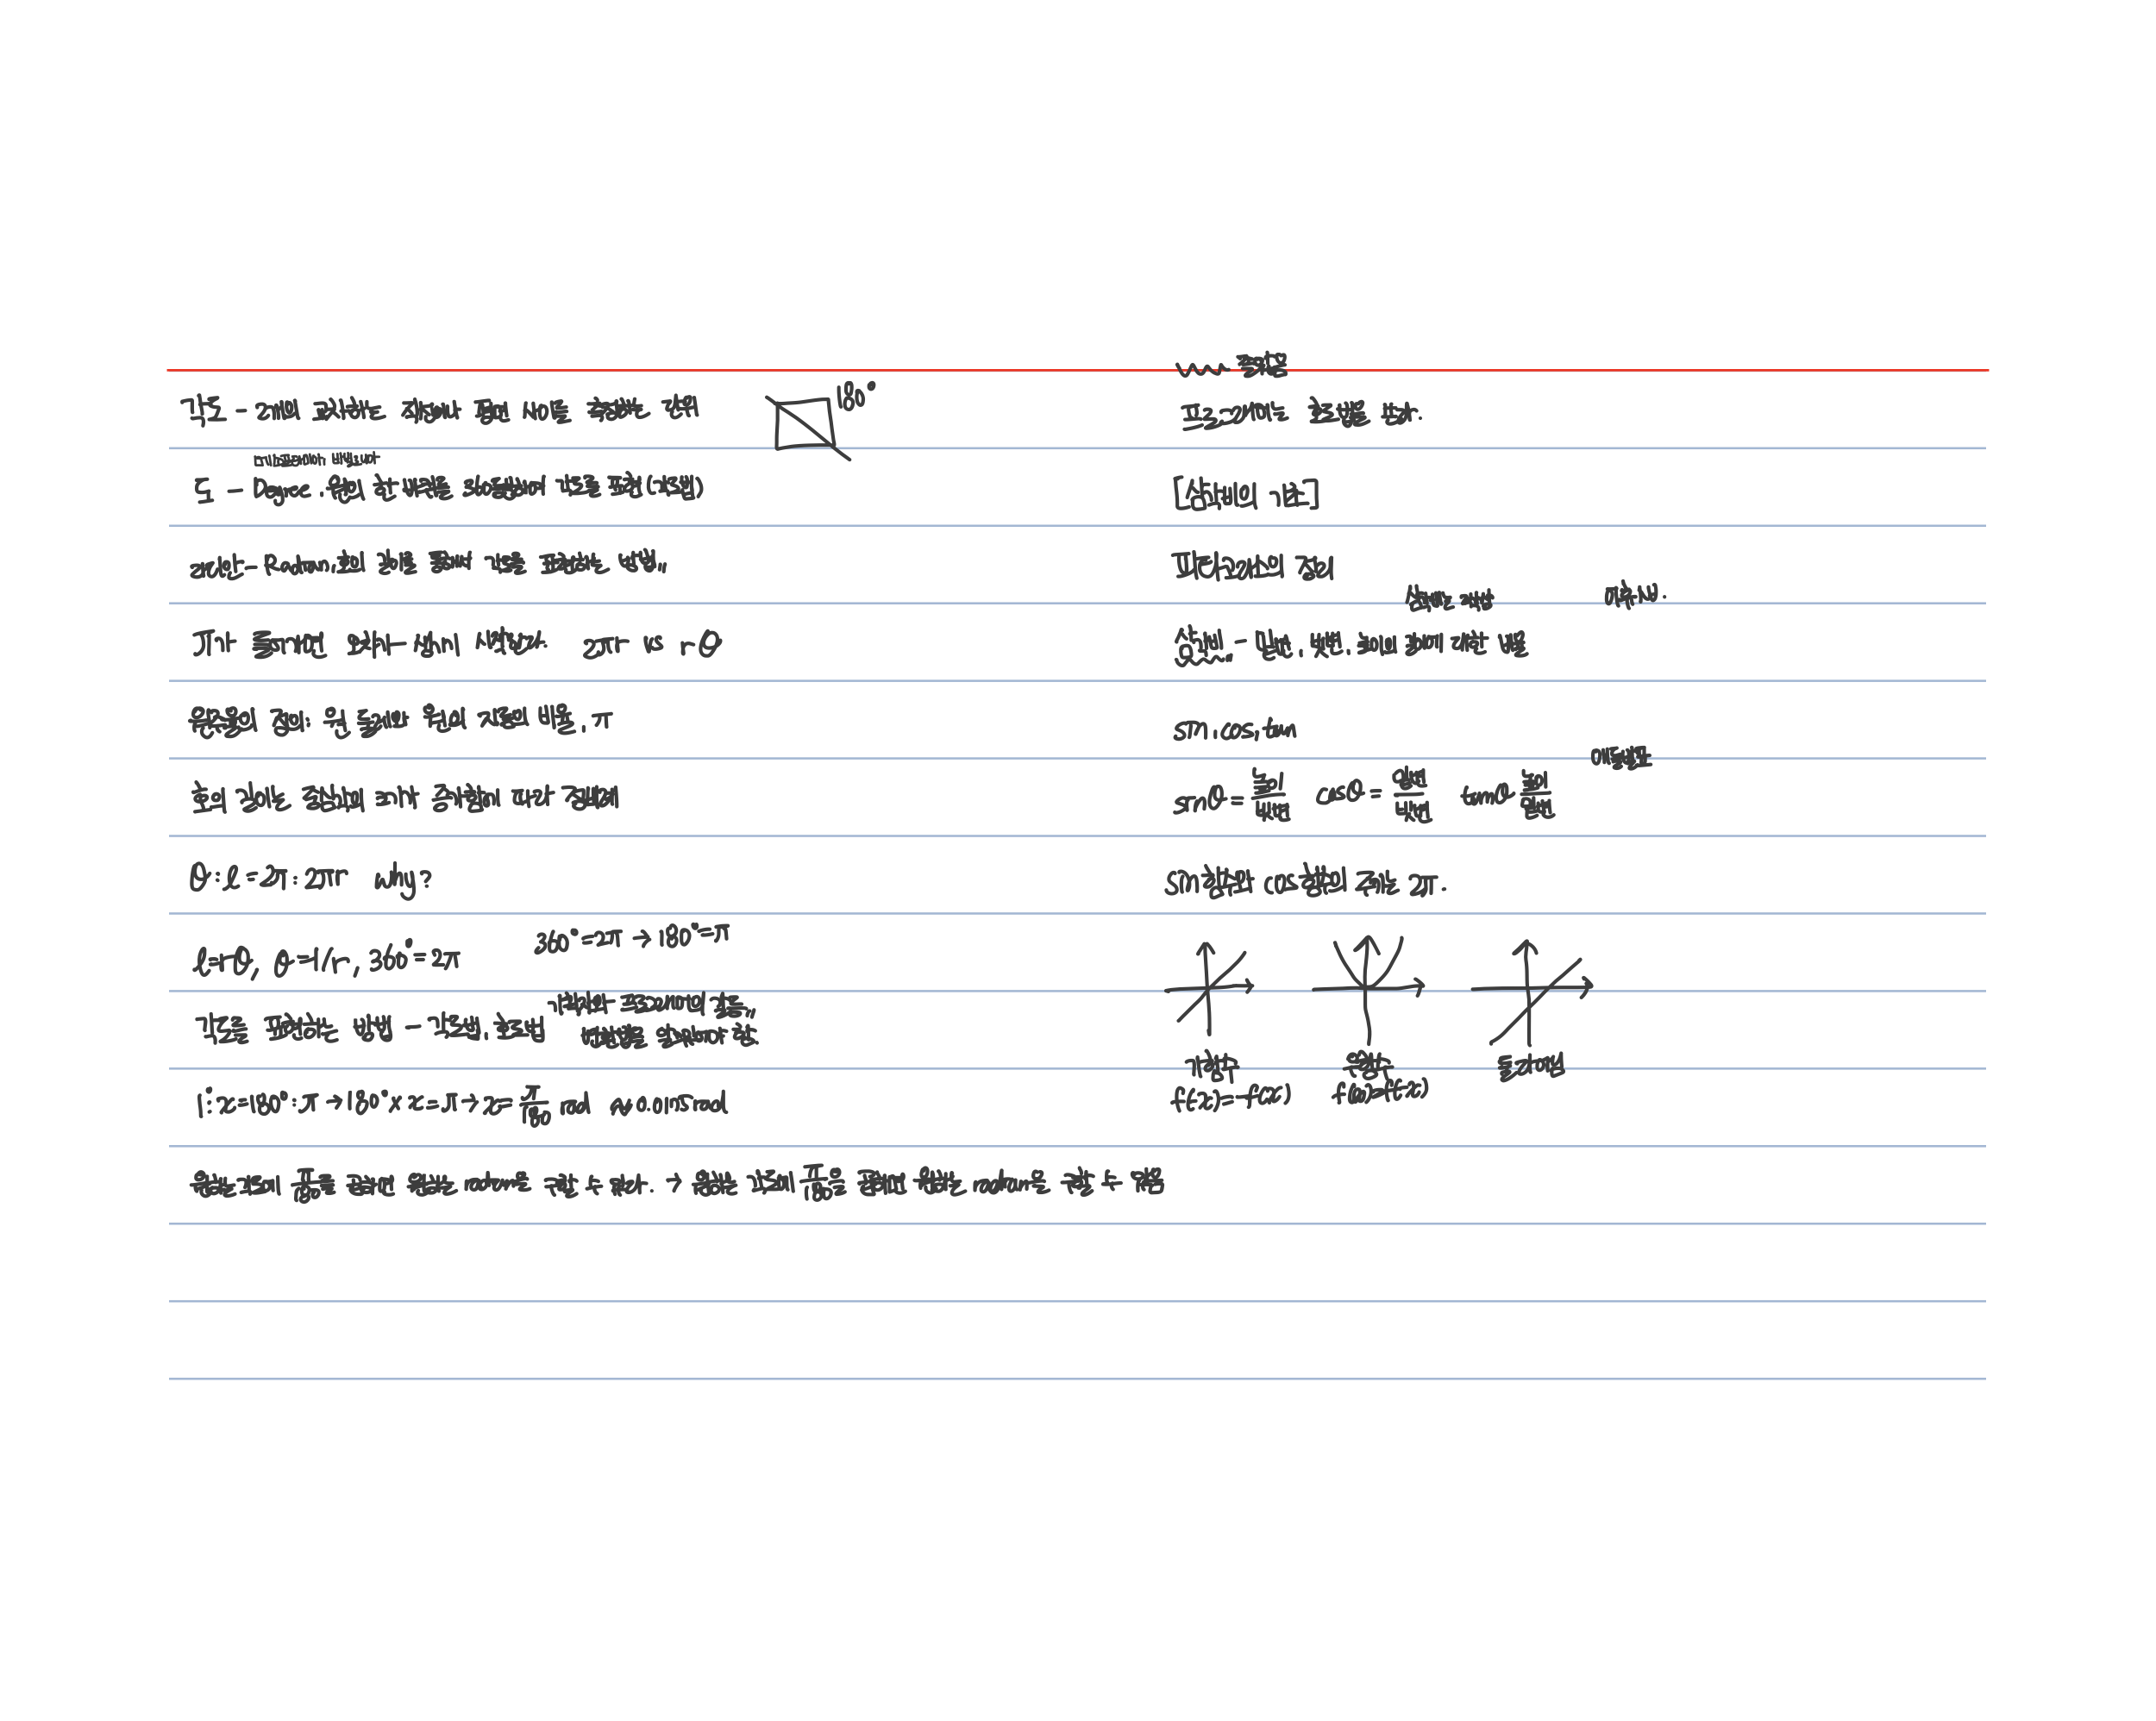 각도 - 2개의 교차하는 직선이나 평면 사이를 측정하는 단위
180°
도 - Degree. 원의 한 바퀴를 360등분하여 각도를 표현 (각도법)
라디안 - Radian, 호의 길이를 통해서 각도를 표현하는 방법,,
π가 들어가면 오차가 생기기 시작한다. 2πr vs rθ
원주율의 정의: 원 둘레와 원의 지름의 비율, π
호의 길이는 중심각의 크기가 증가함에 따라 정비례
θ:l=2π:2πr why?
l=rθ, θ=l/r, 360°=2π
360°=2π→180°=π
각도를 표현하는 방법 - 각도법, 호도법
기획자와 프로그래머의 갈등,,
변환법을 알고있어야 함.
1°:x=180°:π→180°×x=π→x=π/180 rad ∾0.0175rad
원하는 각도에 π/180를 곱하면 원하는 radian을 구할 수 있다. → 원하는 각도에 π/180을 곱하면 원하는 radian을 구할 수 있음
프로그래머는 호도법을 쓴다.
[삼각비의 기초]
피타고라스의 정리
삼각비 - 밑변, 빗변, 높이의 길이에 대한 비율
sin, cos, tan
sinθ=높이/빗변 cosθ=밑변/빗변 tanθ 높이/밑변
sin함수와 cos함수의 주기는 2π.
기함수 우함수
f(-x)=-f(x)